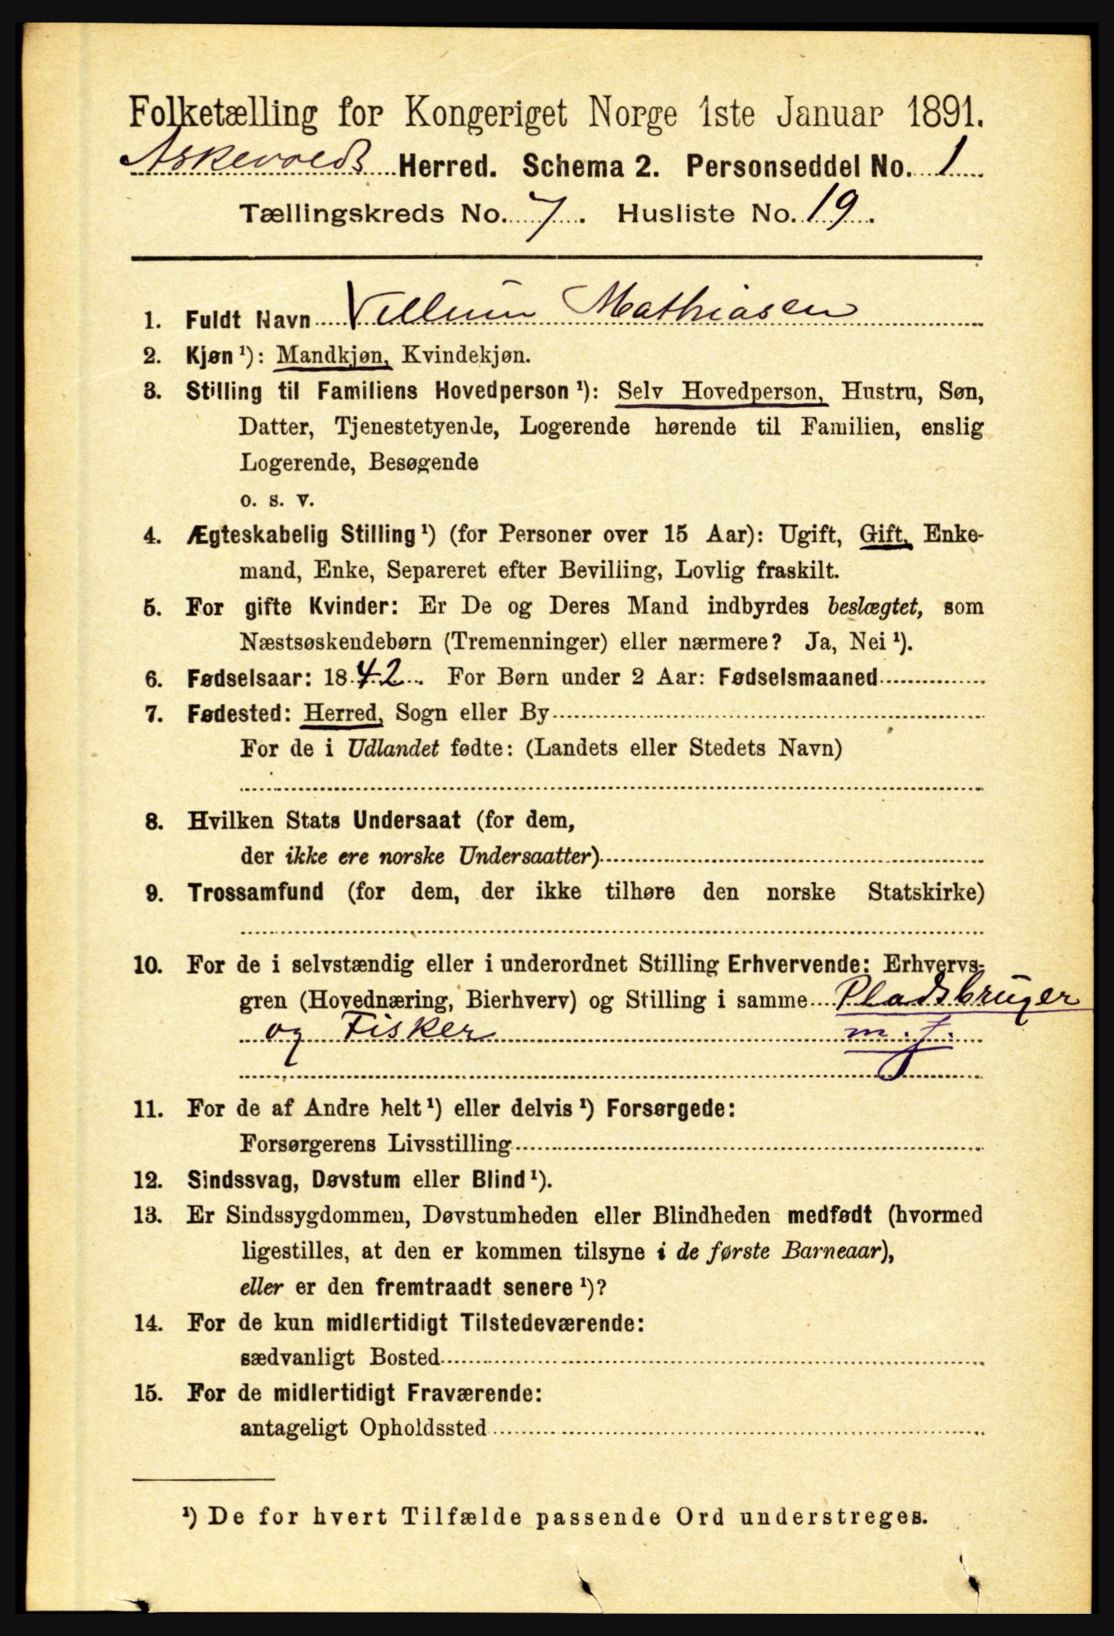 Folketælling for Kongeriget Norge 1ste Januar 1891.
Askevolds Herred. Schema 2. Personseddel No. 1
Tællingskreds No. 7. Husliste No. 19.
1. Fuldt Navn Villum Mathiasen
2. Kjøn ¹): Mandkjøn, Kvindekjøn.
3. Stilling til Familiens Hovedperson ¹): Selv Hovedperson, Hustru, Søn,
Datter, Tjenestetyende, Logerende hørende til Familien, enslig
Logerende, Besøgende
o. s. v.
4. Ægteskabelig Stilling ¹) (for Personer over 15 Aar): Ugift, Gift, Enke-
mand, Enke, Separeret efter Bevilling, Lovlig fraskilt.
5. For gifte Kvinder: Er De og Deres Mand indbyrdes beslægtet, som
Næstsøskendebørn (Tremenninger) eller nærmere? Ja, Nei ¹).
6. Fødselsaar: 1842. For Børn under 2 Aar: Fødselsmaaned
7. Fødested: Herred, Sogn eller By
For de i Udlandet fødte: (Landets eller Stedets Navn)
8. Hvilken Stats Undersaat (for dem,
der ikke ere norske Undersaatter)
9. Trossamfund (for dem, der ikke tilhøre den norske Statskirke)
10. For de i selvstændig eller i underordnet Stilling Erhvervende: Erhvervs-
gren (Hovednæring, Bierhverv) og Stilling i samme Pladsbruger
og Fisker m. j.
11. For de af Andre helt ¹) eller delvis ¹) Forsørgede:
Forsørgerens Livsstilling
12. Sindssvag, Døvstum eller Blind ¹).
13. Er Sindssygdommen, Døvstumheden eller Blindheden medfødt (hvormed
ligestilles, at den er kommen tilsyne i de første Barneaar),
eller er den fremtraadt senere ¹)?
14. For de kun midlertidigt Tilstedeværende:
sædvanligt Bosted
15. For de midlertidigt Fraværende:
antageligt Opholdssted
¹) De for hvert Tilfælde passende Ord understreges.